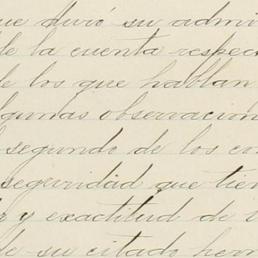 que duró su admi
de la cuenta respec
de los que hablan
lgunas observacion
segundo de los co
seguridad que tien
y exactitud de
de su citado her